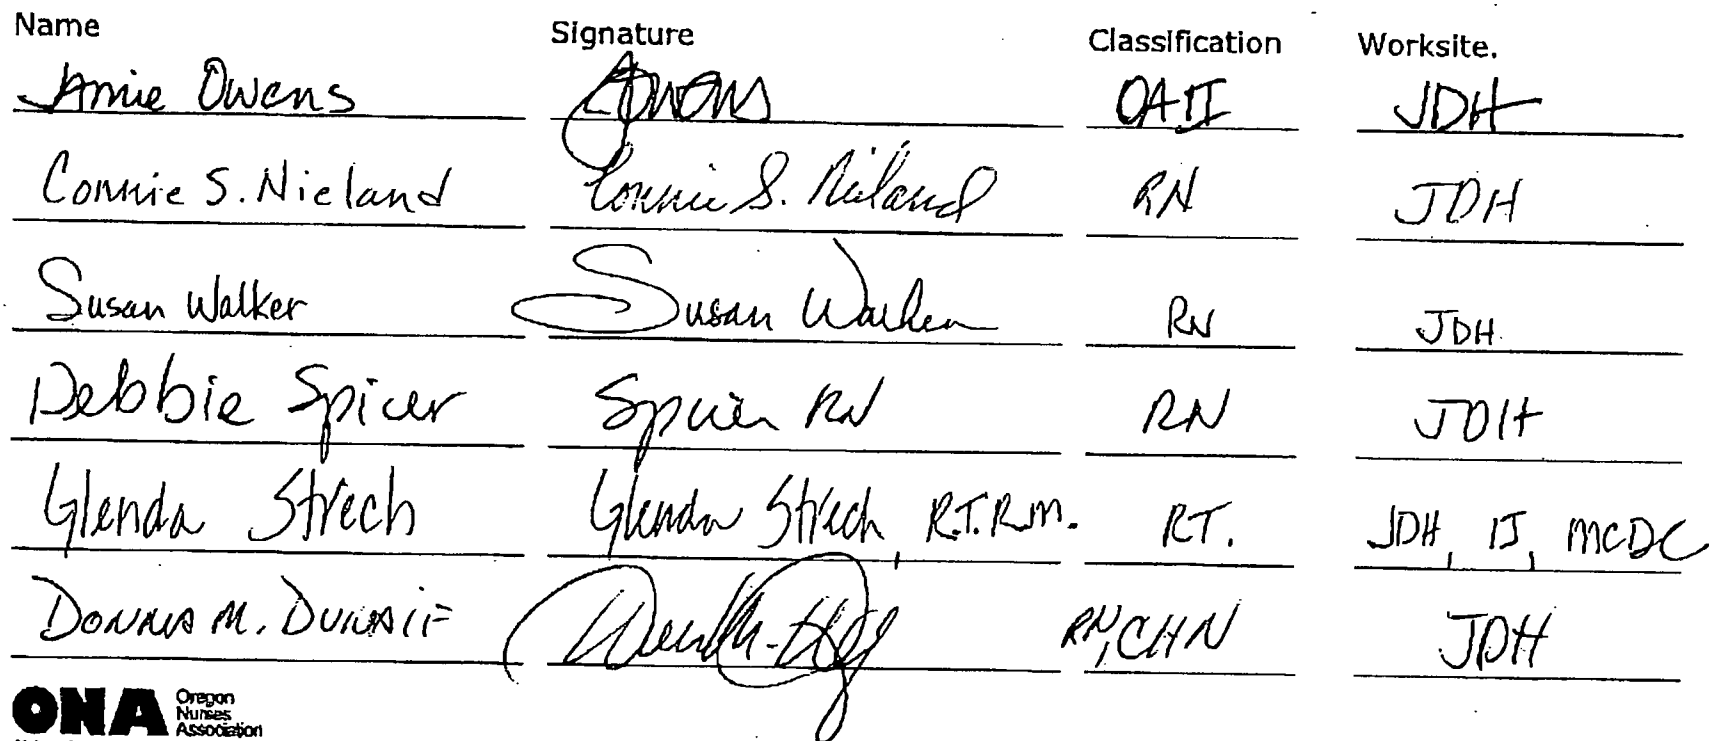 Name Signature Classification Worksite.
Amie Owens Owens OAII JDH
Connie S. Nieland Connie S. Nieland RN JDH
Susan Walker Susan Walker RN JDH
Debbie Spicer Spicer RN RN JDH
Glenda Strech Glenda Strech, R.T.R.M. RT. JDH, IJ, MCDC
Donna M. RN, CHN JDH
ONA Oregon
Nurses
Association